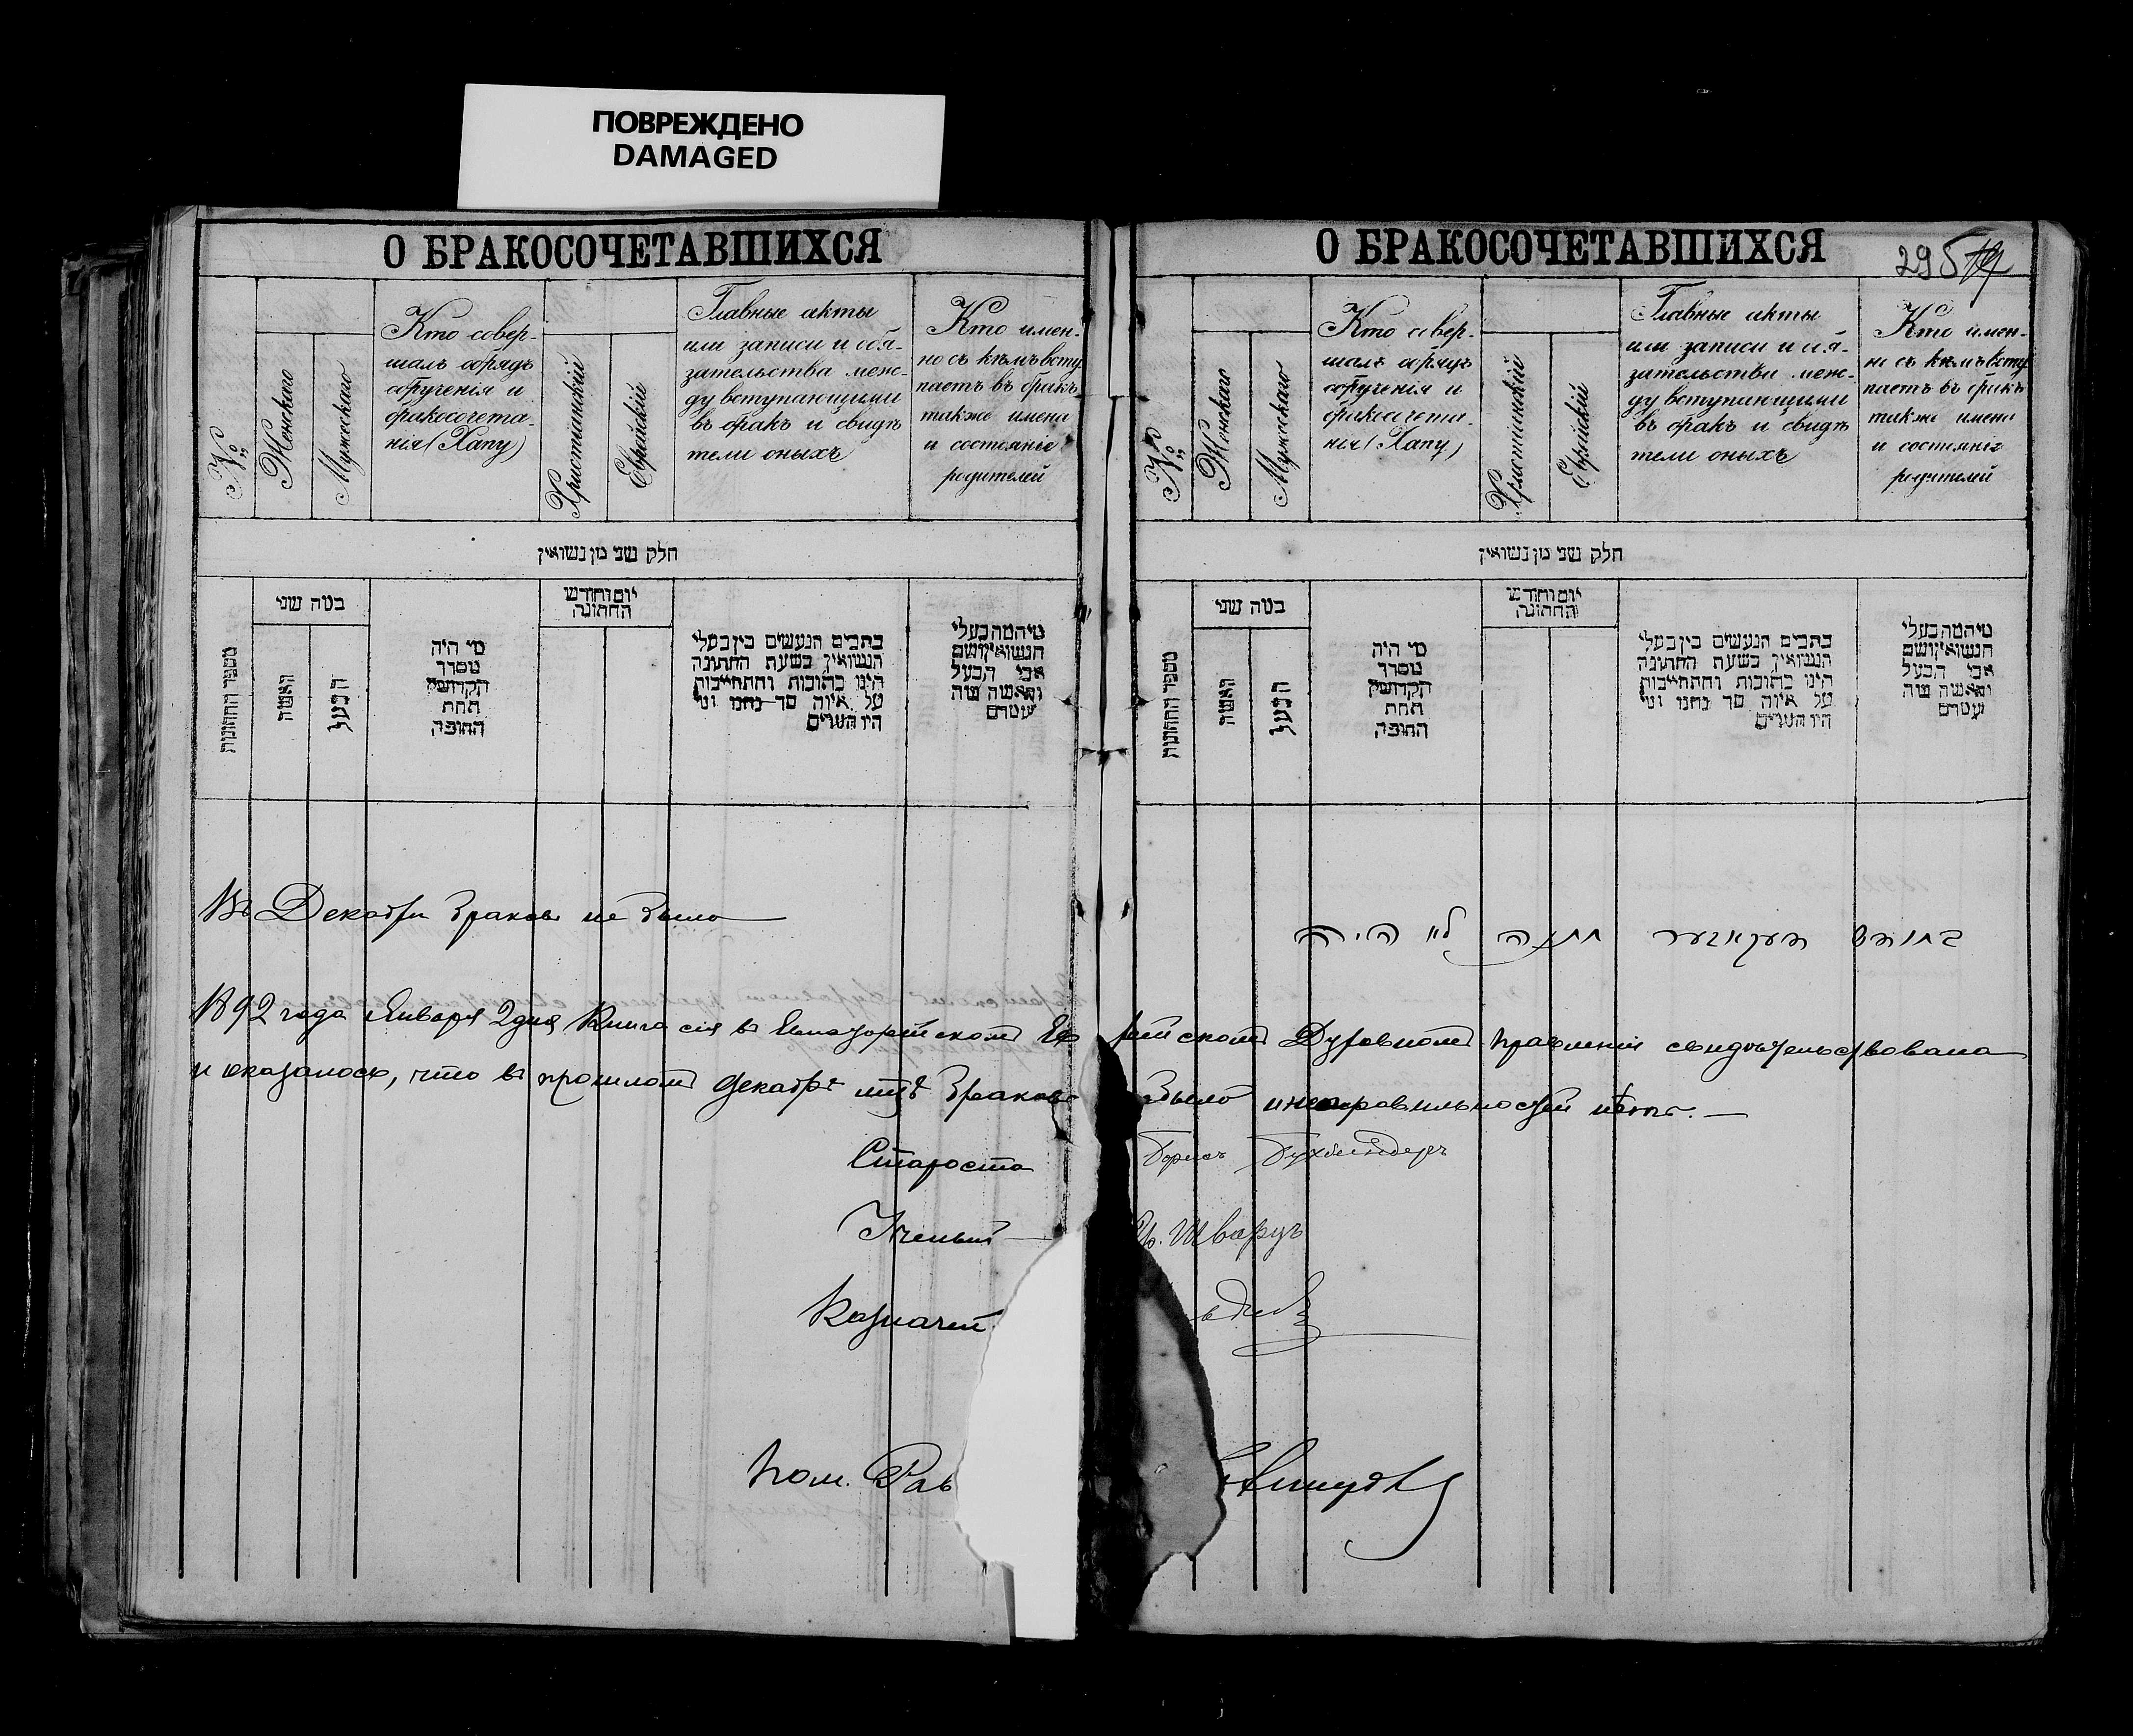 ПОВРЕЖДЕНО
DAMAGED
О БРАКОСОЧЕТАВШИХСЯ
№
Женскаго
Мужескаго
Кто совер-
шалъ обрядъ
обрученія и
бракосочета-
нія (Хапу)
Христіанскій
Еврейскій
Главные акты
или записи и обя-
зательства меж-
ду вступающими
въ бракъ и свидѣ
тели оныхъ
Кто имен-
но съ кѣмъ всту
паетъ въ бракъ
также имена
и состояніе
родителей
חלק שני מן נשואין
מספר החתונות
כמה שני
האשה
הבעל
מי היה
מסדר
הקדושין
תחת
החופה
יום וחודש
החתונה
כתבים הנעשים בין בעלי
הנשואין בשעת החתונה
היינו כתובות והתחייבות
על איזה סך נתנו ומי
היו העדים
מי המה בעלי
הנשואין ושם
אבי הבעל
והאשה ומה
עטרם
Въ Декабрѣ браковъ не было
1892 года Января 2 дня Книга сія въ Евпаторійскомъ Ев
и оказалось, что въ прошломъ Декабрѣ мцѣ браковъ
Староста
Ученый
Казначей
Пом. Рав
О БРАКОСОЧЕТАВШИХСЯ
295
№
Женскаго
Мужескаго
Кто совер-
шалъ обрядъ
обрученія и
бракосочета-
нія (Хапу)
Христіанскій
Еврейскій
Главные акты
или записи и обя-
зательства меж-
ду вступающими
въ бракъ и свидѣ
тели оныхъ
Кто имен-
но съ кѣмъ всту
паетъ въ бракъ
также имена
и состояніе
родителей
חלק שני מן נשואין
מספר החתונות
כמה שני
האשה
הבעל
מי היה
מסדר
הקדושין
תחת
החופה
יום וחודש
החתונה
כתבים הנעשים בין בעלי
הנשואין בשעת החתונה
היינו כתובות והתחייבות
על איזה סך נתנו ומי
היו העדים
מי המה בעלי
הנשואין ושם
אבי הבעל
והאשה ומה
עטרם
בחודש דעקאבער חתנה לא היה
рейскомъ Духовномъ Правленіи свидѣтельствована
было и неправильностей нѣтъ.
Борисъ Бухбиндеръ
Шварцъ